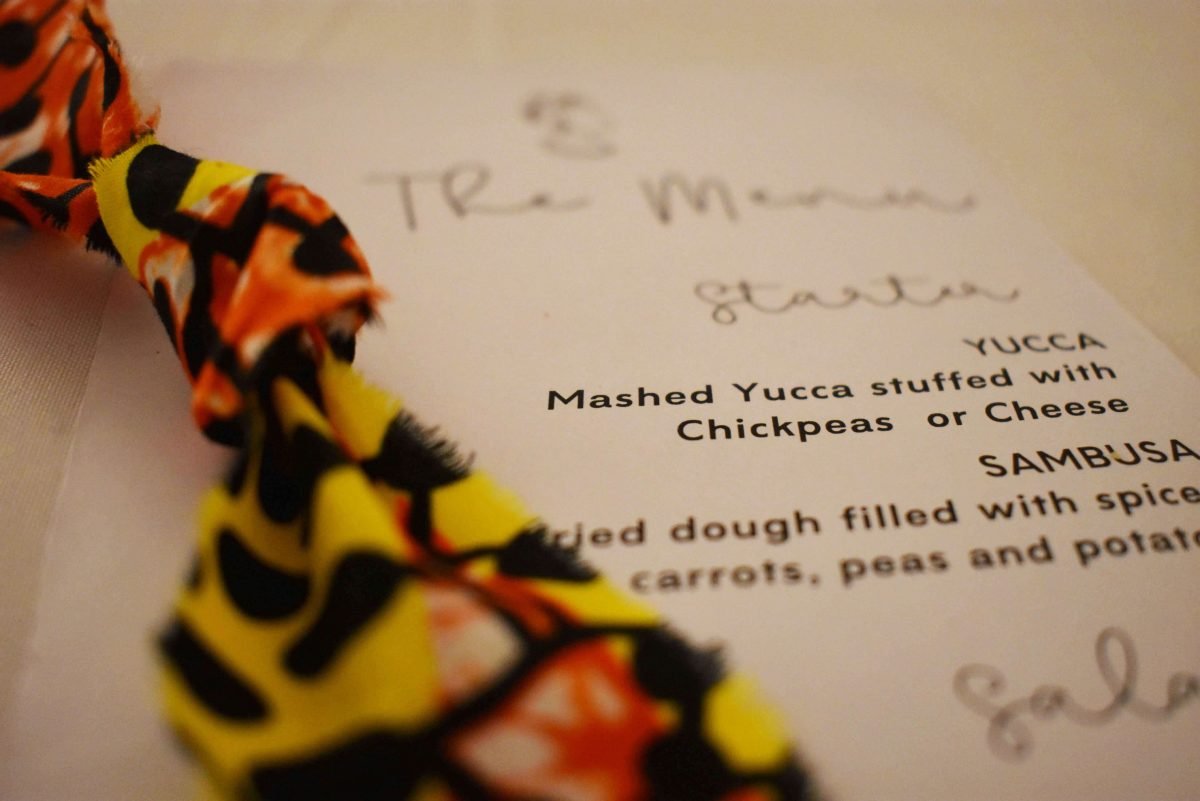 The Menu
Starter
YUCCA
Mashed Yucca stuffed with
Chickpeas or Cheese
SAMBUSA
dough filled with
carrots, peas and